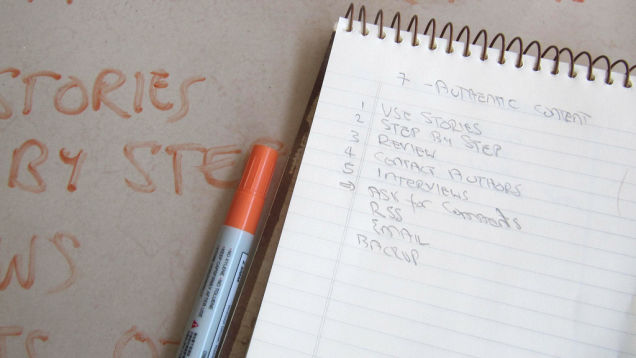 STORIES
BY STEP
WS
7 - AUTHENTIC CONTENT
1 USE STORIES
2 STEP BY STEP
3 REVIEW
4 CONTACT AUTHORS
5 INTERVIEWS
⇒ ASK for Comments
RSS
EMAIL
BACKUP